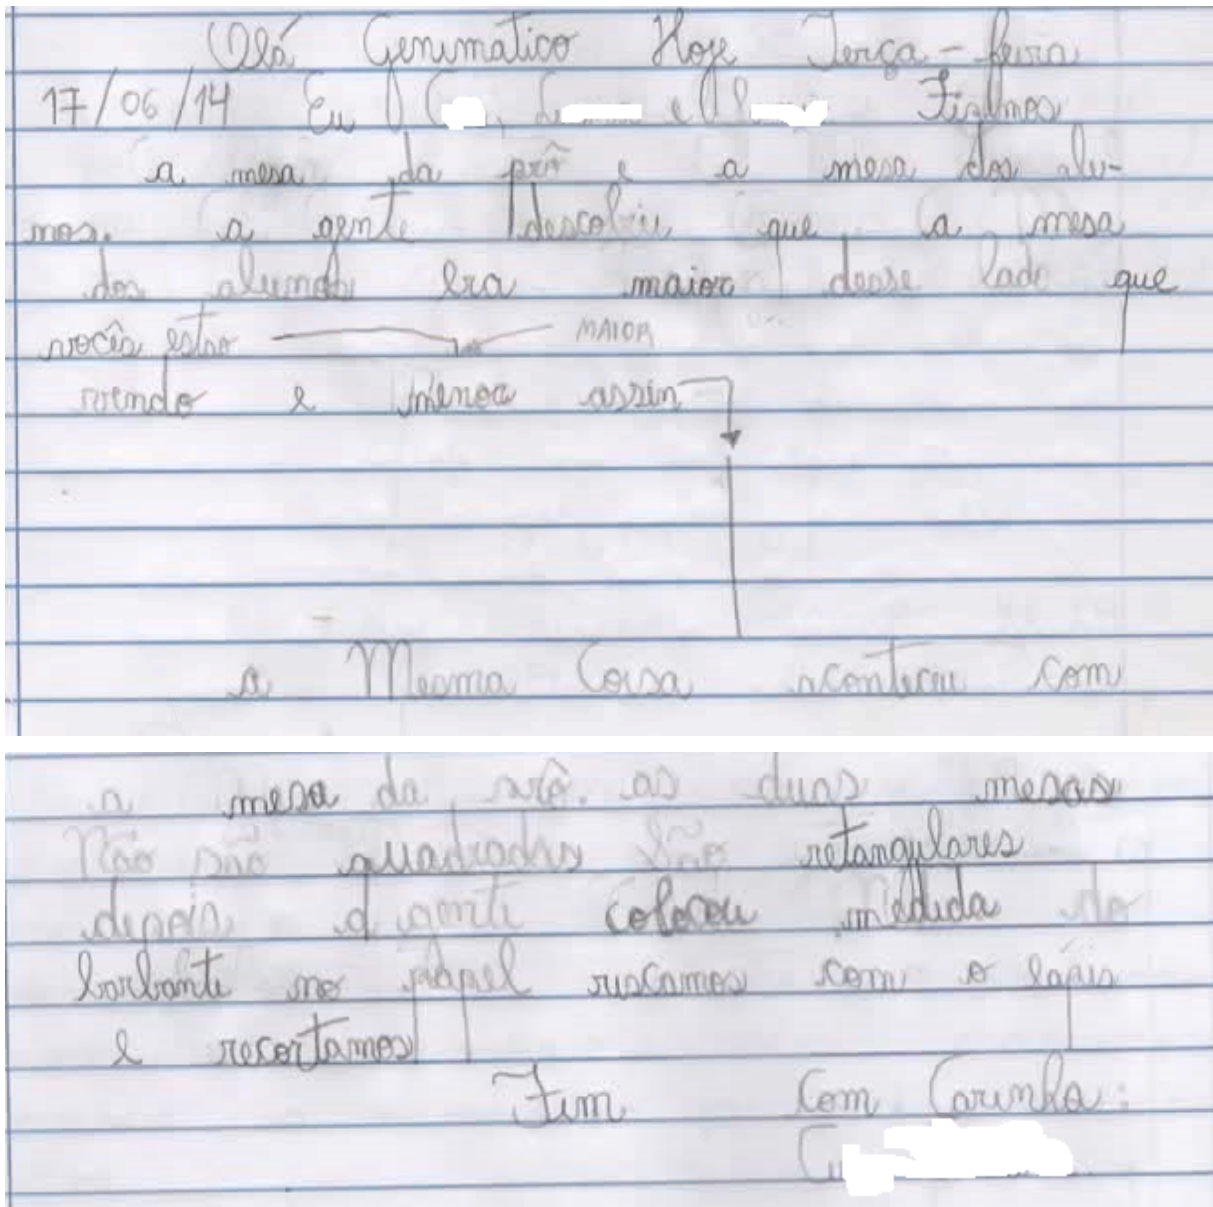 Olá Genimatico Hoje Terça-feira
17/06/14 Eu e Fizemos
a mesa da prô e a mesa dos alu-
nos. a gente descobriu que a mesa
dos alunos era maior desse lado que
vocês estao MAIOR
vendo e menor assin
a Mesma Coisa aconteceu com
a mesa da prô. as duas mesas
Não são quadradas São retangulares
depois a gente colocou medida do
barbante no papel riscamos com o lápis
e recortamos
Fim Com Carinho: